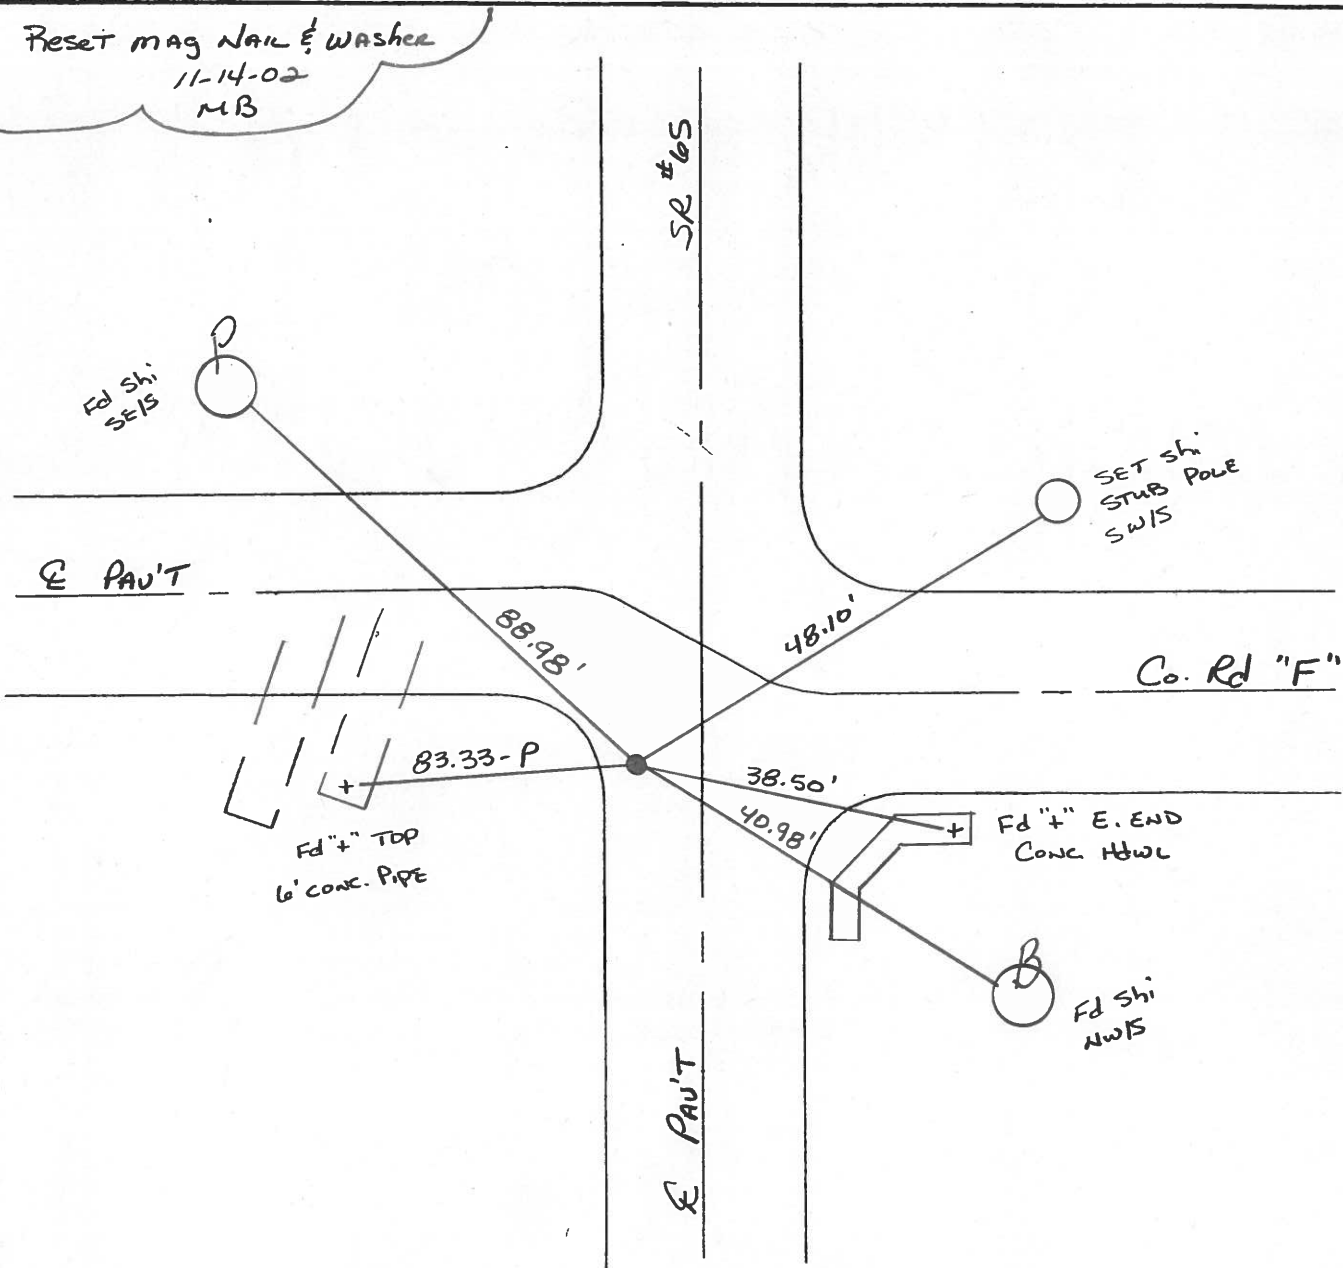 Reset mag Nail & Washer
11-14-02
MB
SR #65
Fd Shi
SE/S
SET Shi
STUB POLE
SW/S
℄ PAV'T
88.98'
48.10'
Co. Rd "F"
83.33-P
38.50'
40.98'
Fd "+" TOP
6' CONC. PIPE
Fd "+" E. END
CONC. HdWL
Fd Shi
NW/S
℄ PAV'T